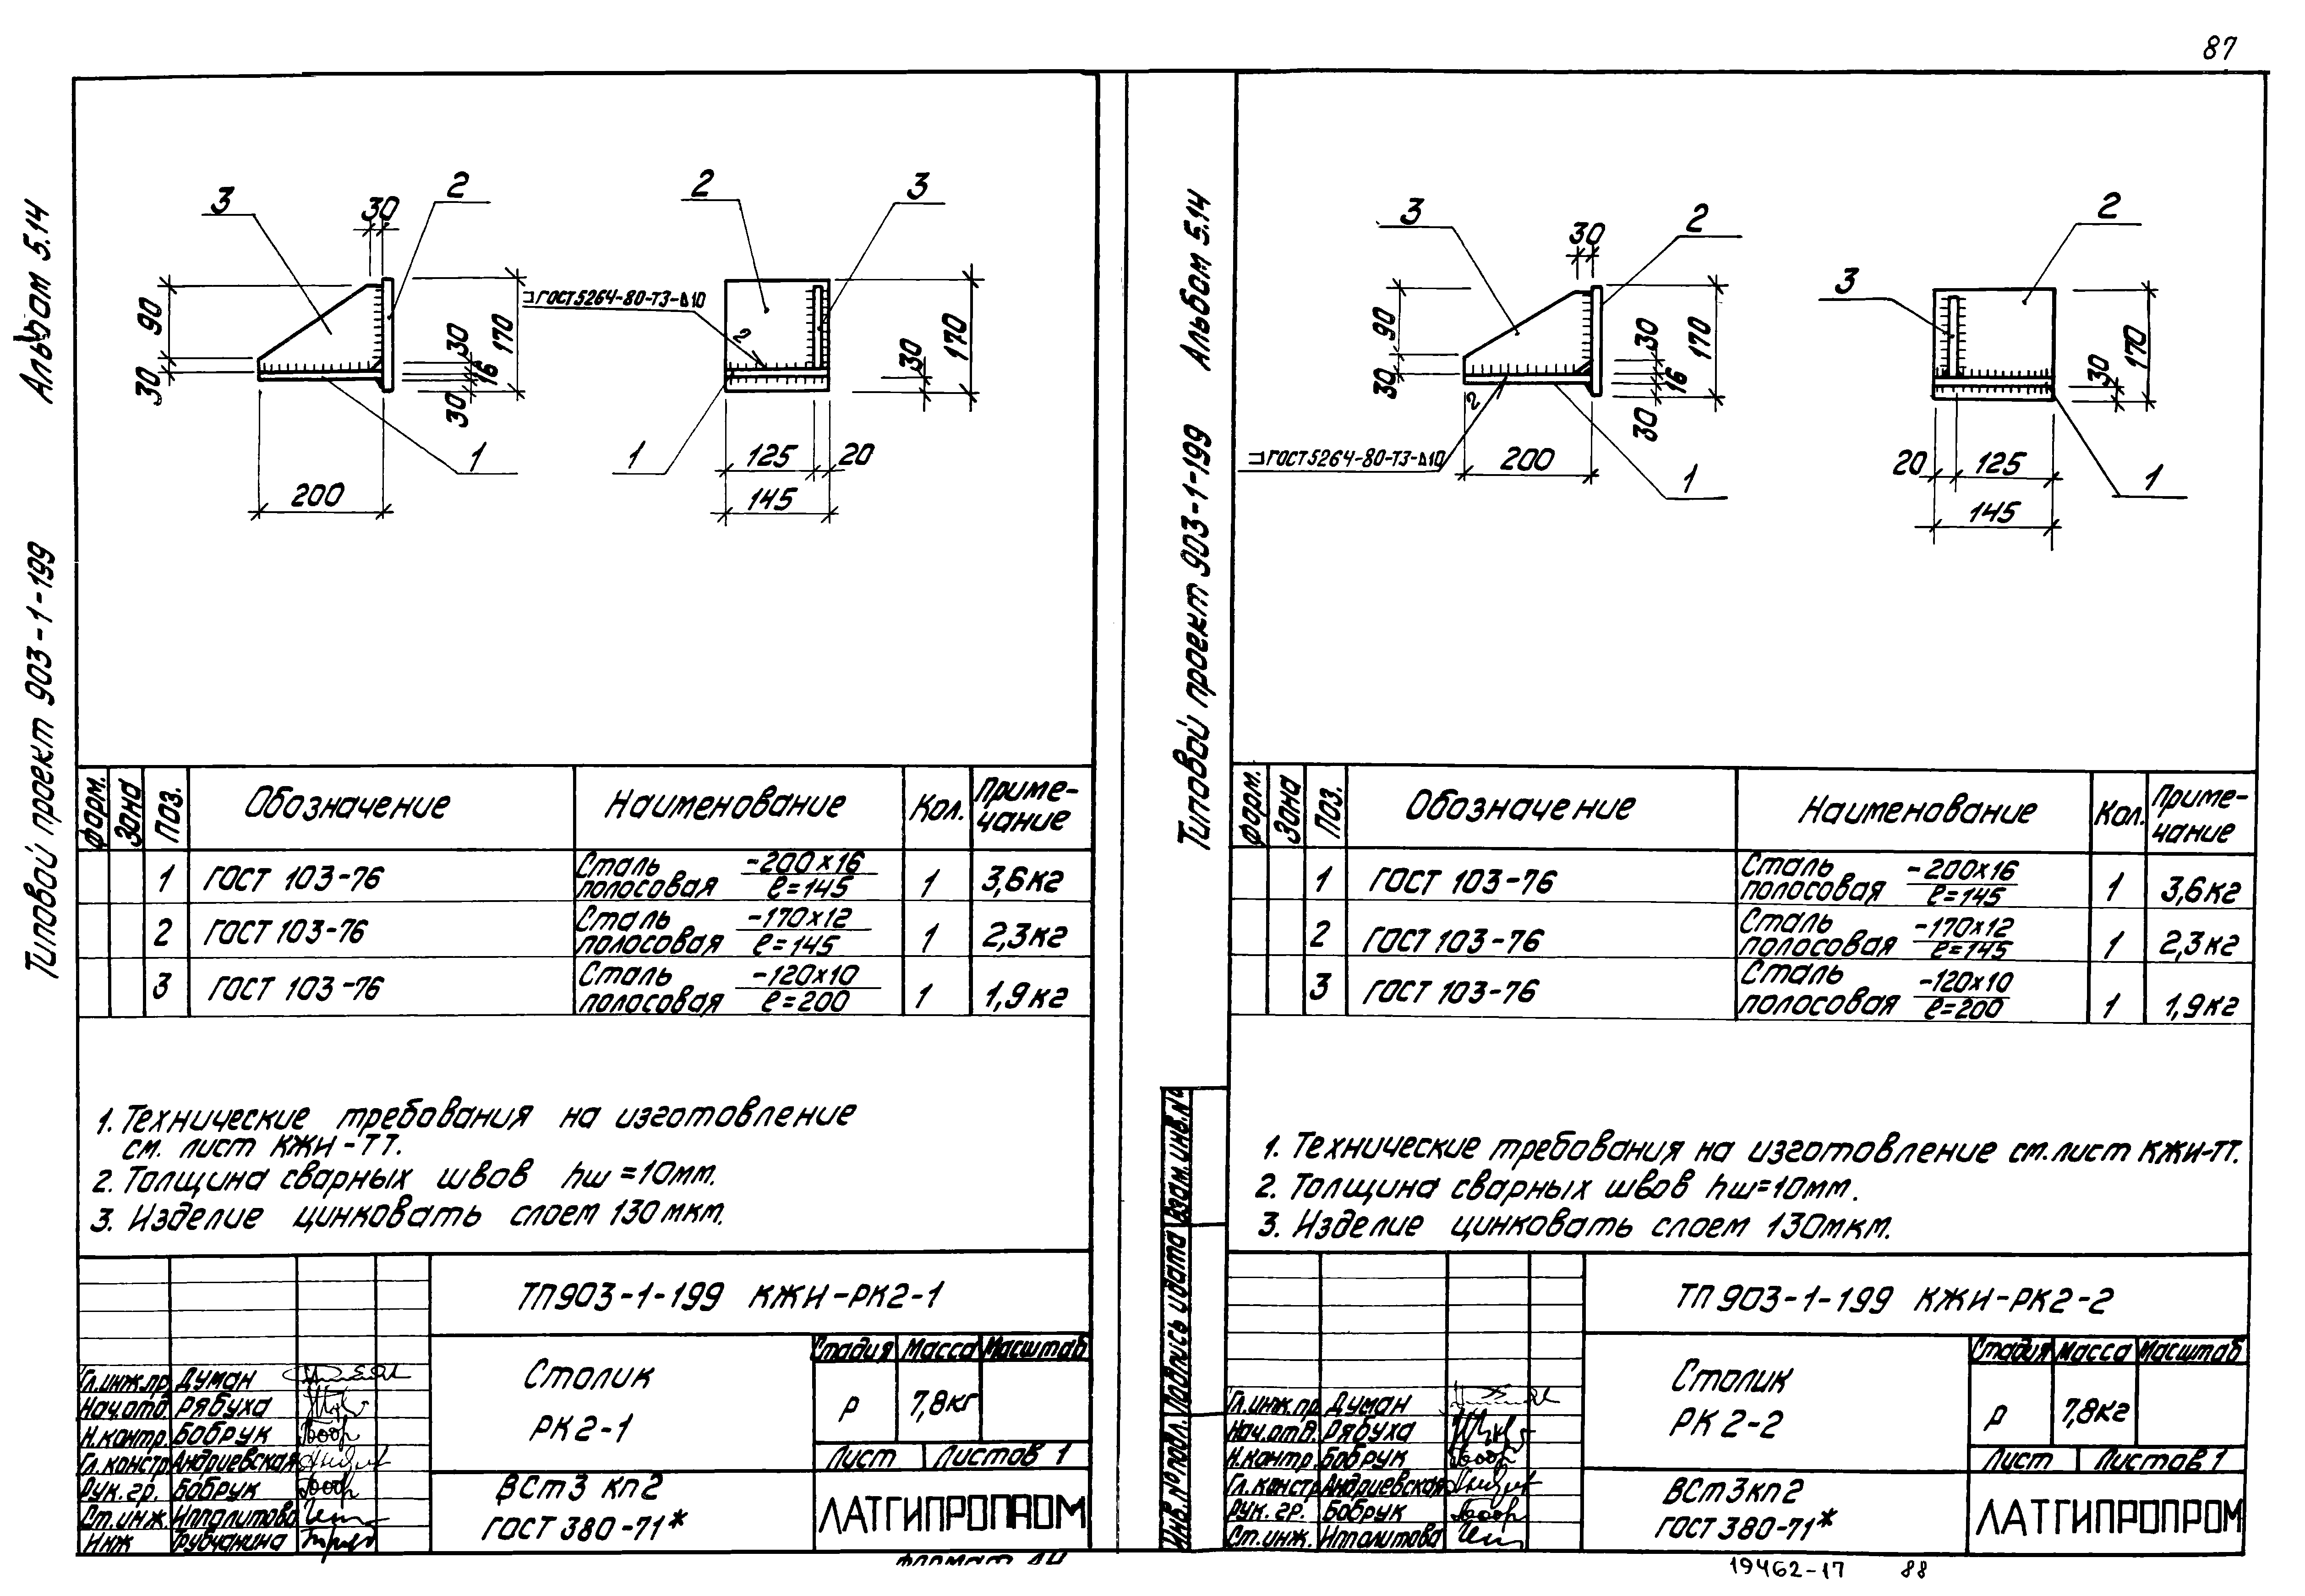 87
Альбом 5.14
Типовой проект 903-1-199
3
30
2
90
30
200
1
30
16
30
170
ГОСТ 5264-80-Т3-⊿10
2
2
3
1
125
20
145
30
170
форм.
Зона
Поз.
Обозначение
Наименование
Кол.
Приме-
чание
1 ГОСТ 103-76 Сталь полосовая -200х16 ℓ=145 1 3,6кг
2 ГОСТ 103-76 Сталь полосовая -170х12 ℓ=145 1 2,3кг
3 ГОСТ 103-76 Сталь полосовая -120х10 ℓ=200 1 1,9кг
1. Технические требования на изготовление
см. лист КЖИ-ТТ.
2. Толщина сварных швов hш=10мм.
3. Изделие цинковать слоем 130мкм.
ТП903-1-199 КЖИ-РК2-1
Столик
РК2-1
Стадия Масса Масштаб
р 7,8кг
Лист Листов 1
ВСт3 кп2
ГОСТ 380-71*
ЛАТГИПРОПРОМ
Гл.инж.пр Думан
Нач.отд. Рябуха
Н.контр. Бобрук
Гл.констр Андриевская
Рук. гр. Бобрук
Ст.инж. Ипполитова
Инж Трубчанина
Формат
Альбом 5.14
Типовой проект 903-1-199
3
30
2
90
30
200
1
30
16
30
170
2
ГОСТ 5264-80-Т3-⊿10
3
2
20
125
145
1
30
170
форм.
Зона
Поз.
Обозначение
Наименование
Кол.
Приме-
чание
1 ГОСТ 103-76 Сталь полосовая -200х16 ℓ=145 1 3,6кг
2 ГОСТ 103-76 Сталь полосовая -170х12 ℓ=145 1 2,3кг
3 ГОСТ 103-76 Сталь полосовая -120х10 ℓ=200 1 1,9кг
1. Технические требования на изготовление см. лист КЖИ-ТТ.
2. Толщина сварных швов hш=10мм.
3. Изделие цинковать слоем 130мкм.
Взам.инв.№
Подпись и дата
Инв.№ подл.
ТП903-1-199 КЖИ-РК2-2
Столик
РК2-2
Стадия Масса Масштаб
р 7,8кг
Лист Листов 1
ВСт3кп2
ГОСТ 380-71*
ЛАТГИПРОПРОМ
Гл.инж.пр Думан
Нач.отв. Рябуха
Н.контр. Бобрук
Гл.констр Андриевская
Рук. гр. Бобрук
Ст.инж. Ипполитова
19462-17 88